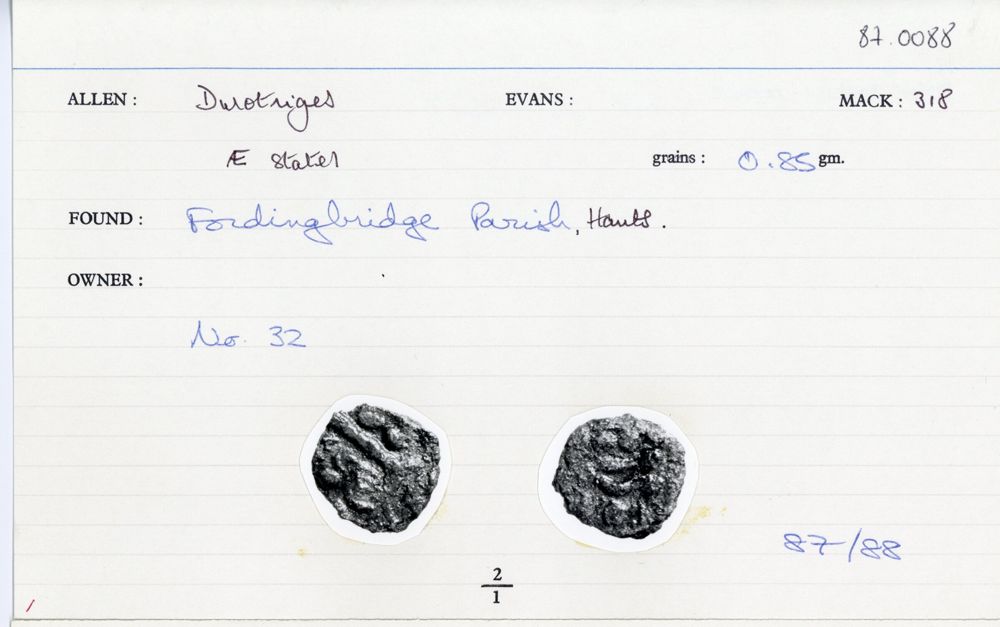 87.0088
ALLEN : Durotriges EVANS : MACK : 318
Æ stater grains : 0.85 gm.
FOUND : Fordingbridge Parish, Hants.
OWNER :
No. 32
87/88
2
1